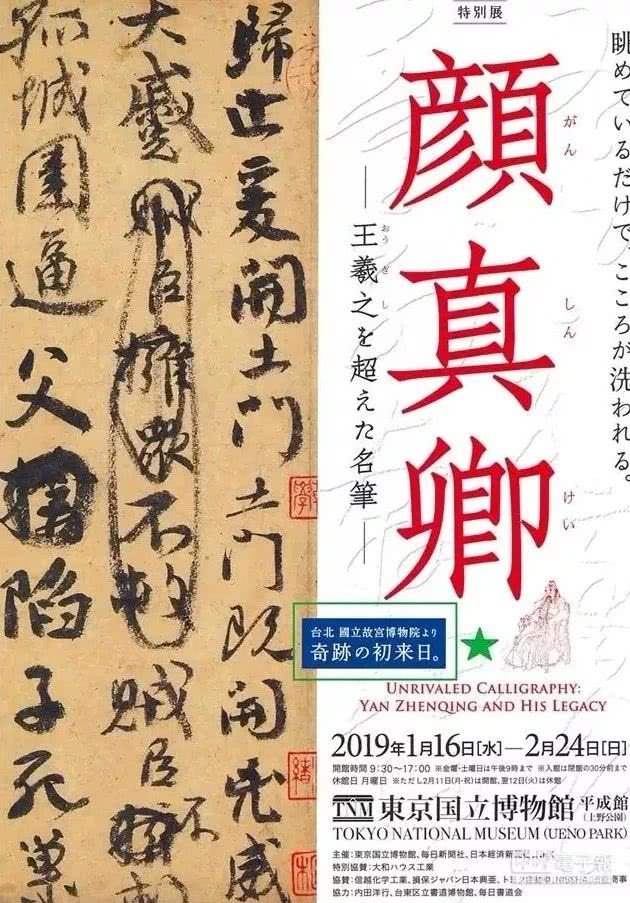 特別展
眺めているだけで、こころが洗われる。
顔真卿
がん
しん
けい
―王羲之を超えた名筆―
おう ぎ し
歸止爰開土門土門既開兇威
大蹙賊臣擁衆不救賊臣不
孤城圍逼父陷子死巢
台北 國立故宮博物院より
奇跡の初来日。
UNRIVALED CALLIGRAPHY:
YAN ZHENQING AND HIS LEGACY
2019年1月16日[水]―2月24日[日]
開館時間 9:30〜17:00 ※金曜・土曜日は午後9時まで ※入館は閉館の30分前まで
休館日 月曜日 ※ただし2月11日(月・祝)は開館、翌12日(火)は休館
東京国立博物館 平成館
(上野公園)
TOKYO NATIONAL MUSEUM (UENO PARK)
主催:東京国立博物館、毎日新聞社、日本経済新聞社、NHK
特別協賛:大和ハウス工業
協賛:信越化学工業、損保ジャパン日本興亜、
協力:内田洋行、台東区立書道博物館、毎日書道会